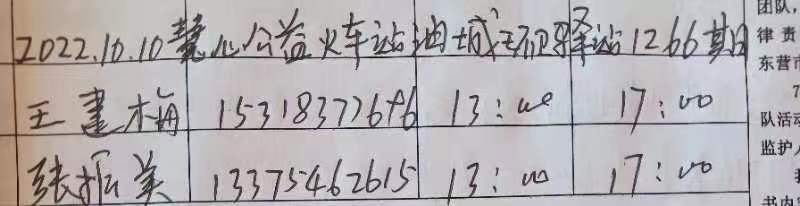 2022.10.10慧心公益火车站油城 驿站1266期
王建梅 15318377696 13:00 17:00
张振美 13375462615 13:00 17:00
团队,
律责
东营市
7
队活动
监护人
书内容